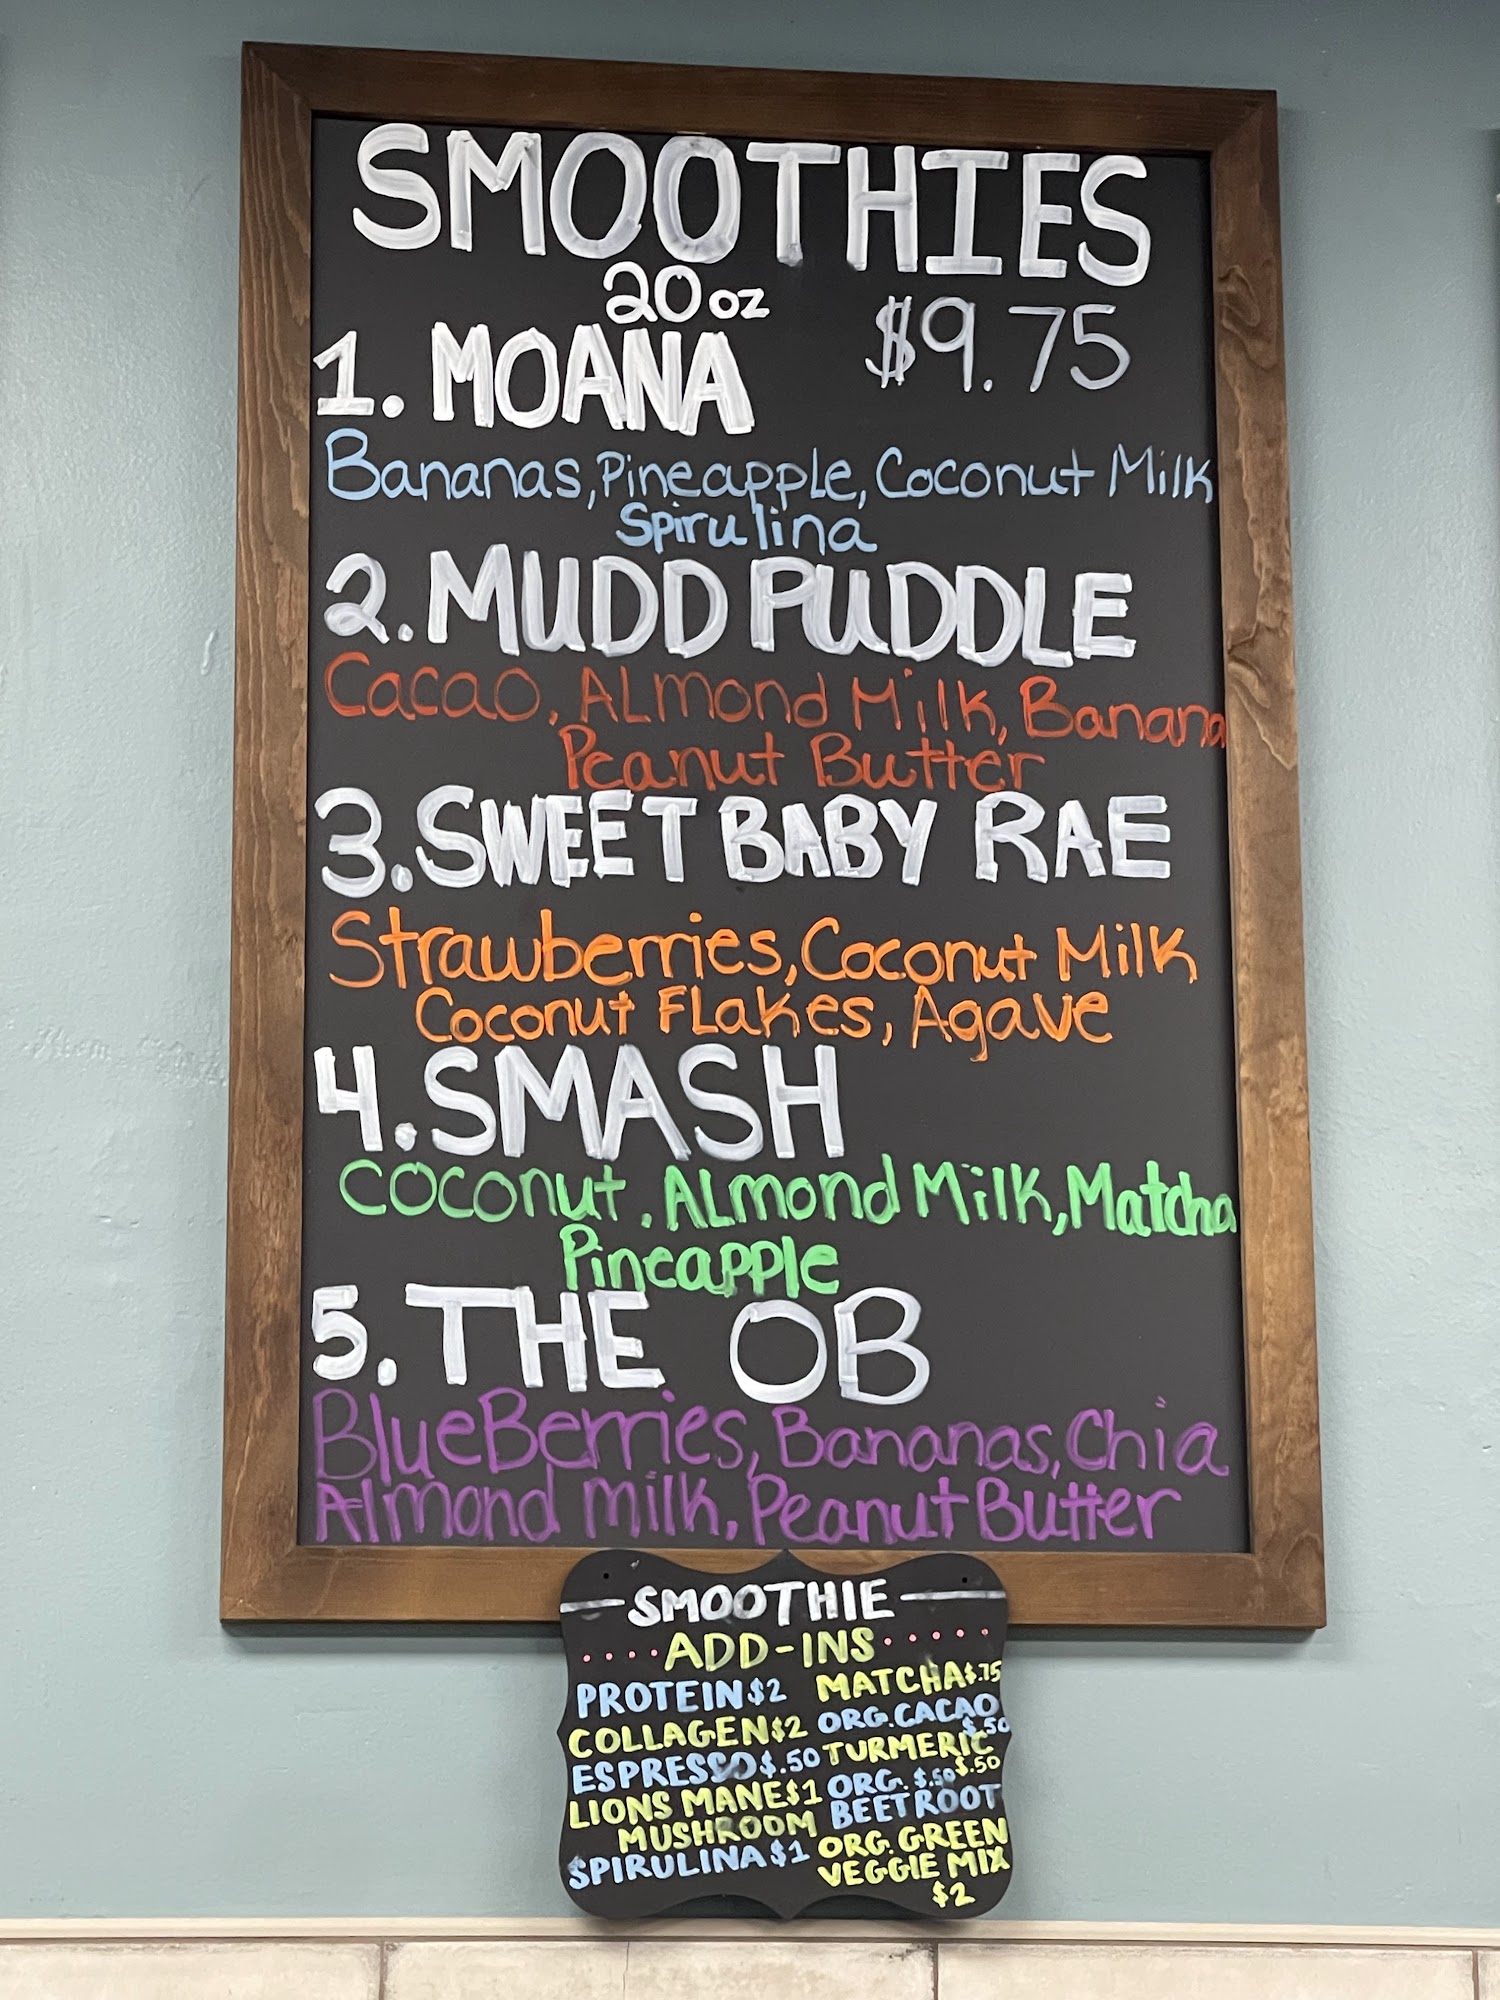 SMOOTHIES
20 oz
$9.75
1. MOANA
Bananas, Pineapple, Coconut Milk
Spirulina
2. MUDD PUDDLE
Cacao, Almond Milk, Banana
Peanut Butter
3. SWEET BABY RAE
Strawberries, Coconut Milk
Coconut Flakes, Agave
4. SMASH
Coconut, Almond Milk, Matcha
Pineapple
5. THE OB
BlueBerries, Bananas, Chia
Almond milk, Peanut Butter
SMOOTHIE
ADD-INS
PROTEIN $2
COLLAGEN $2
ESPRESSO $.50
LIONS MANE $1
MUSHROOM
SPIRULINA $1
MATCHA $.75
ORG. CACAO
$.50
TURMERIC
$.50
ORG. $.50
BEETROOT
ORG. GREEN
VEGGIE MIX
$2